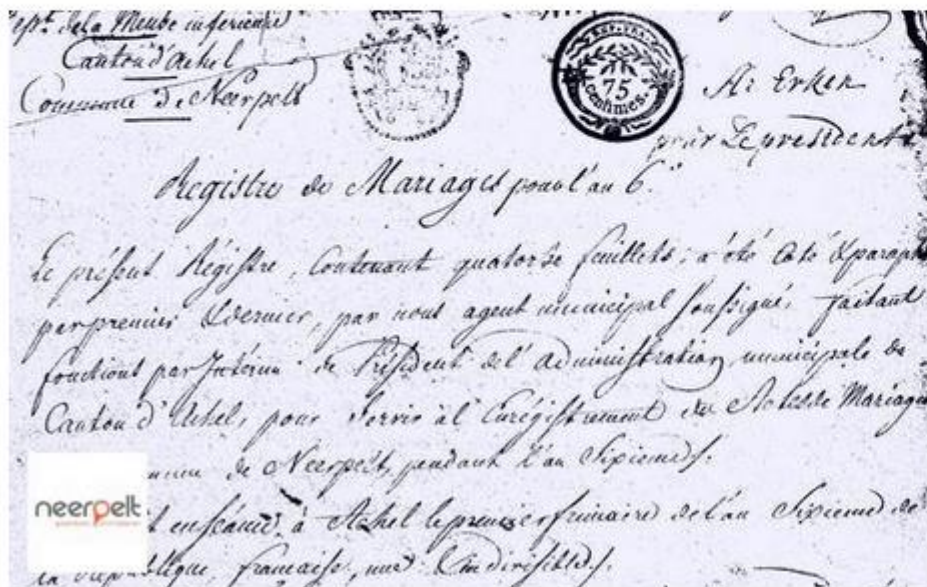 Dept. de la Meuse inférieure
Canton d'Achel
Commune de Neerpelt
75
Centimes.
pour Le president
Registre de Mariages pour l'an 6.
Le présent Régistre, Contenant quatorse feuillets, a été Coté & paraphé
par premier & dernier, par nous agent municipal soussigné, faisant
fonctions par Interim de Président de l'administration municipale du
Canton d'Achel, pour servir à l'Enrégistrement des Actes de Mariages
de Neerpelt, pendant l'an Sixieme.
en séance à Achel le premier frimaire de l'an Sixieme de
la Republique, francaise, une & indivisible.
neerpelt